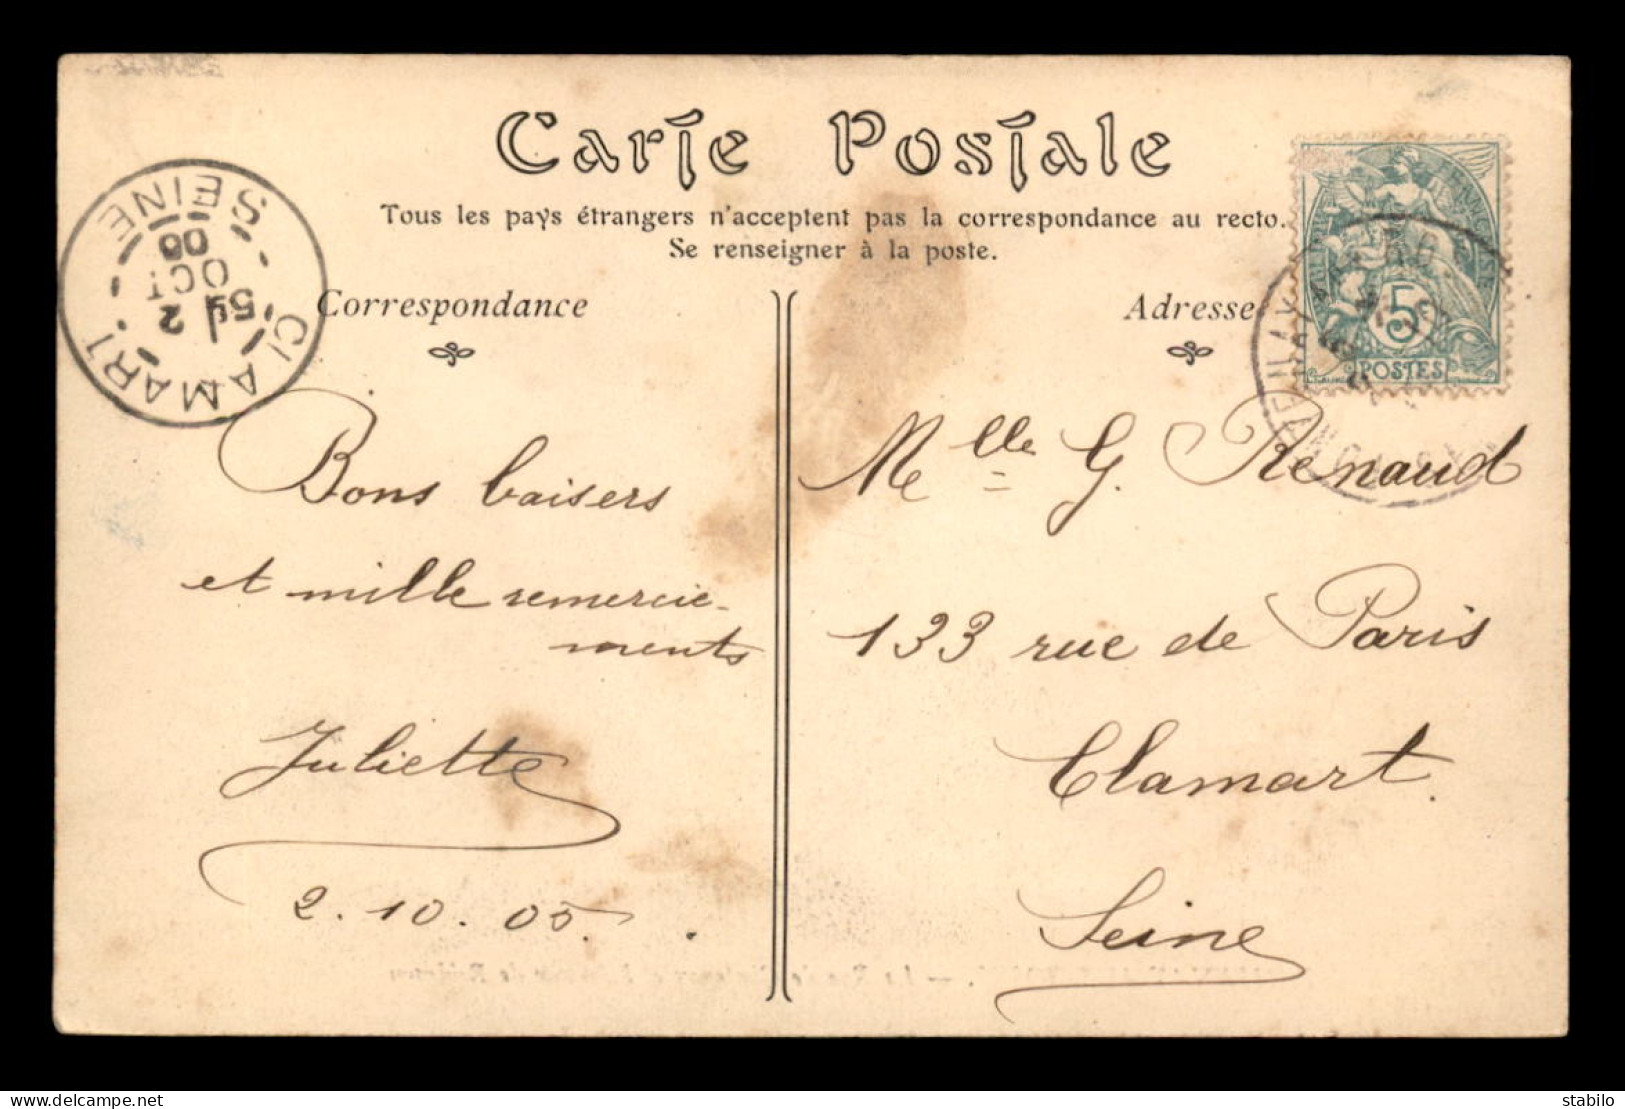 Carte Postale
Tous les pays étrangers n'acceptent pas la correspondance au recto.
Se renseigner à la poste.
Correspondance
Adresse
CLAMART
SEINE
2
OCT
POSTES
5
Bons baisers
et mille remercie-
ments
Juliette
2.10.05.
Mlle G. Renaud
133 rue de Paris
Clamart.
Seine
delcampe.net
stabilo